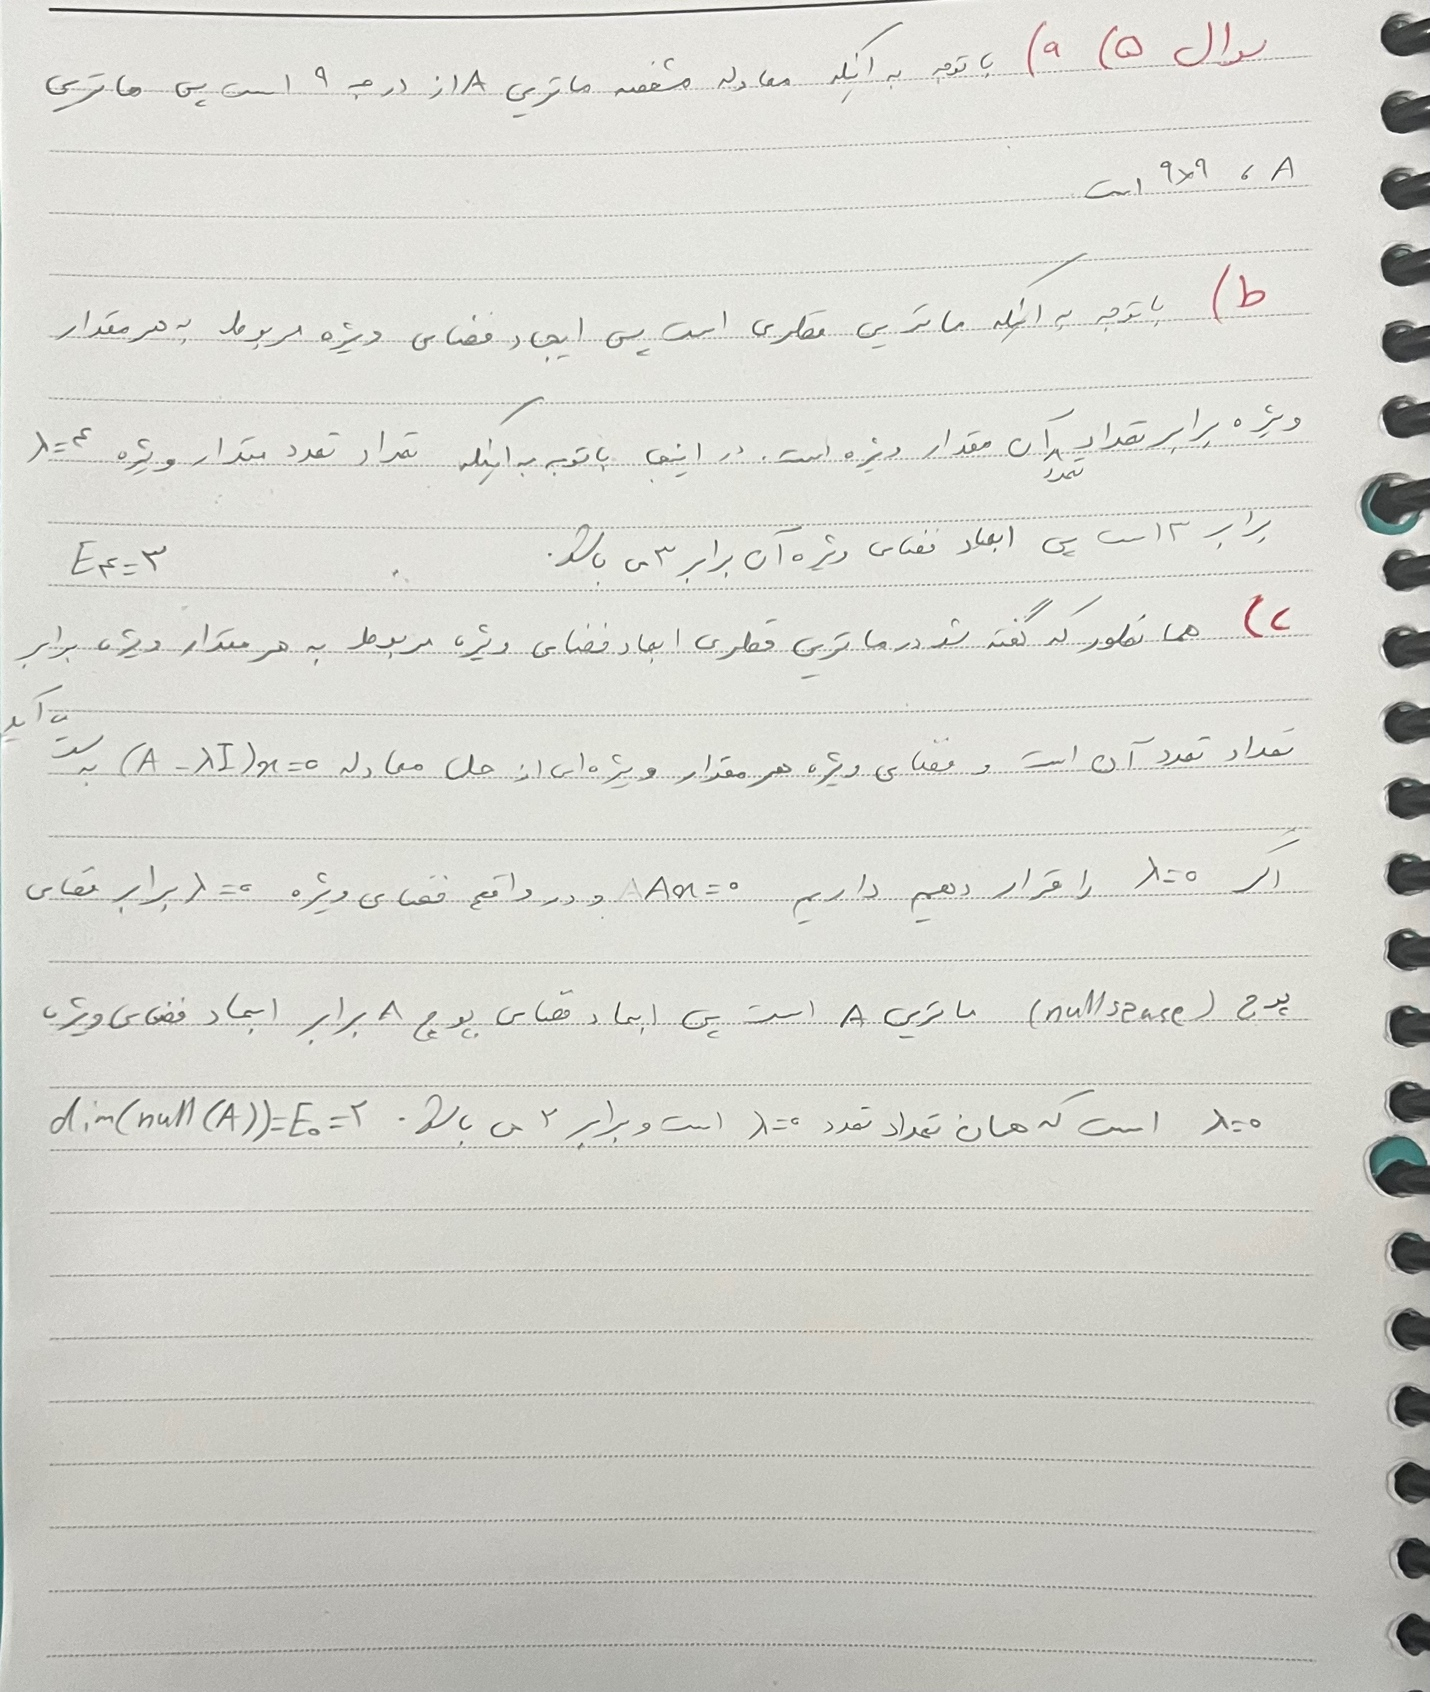 سوال ۵) a) با توجه به اینکه معادله مشخصه ماتریس A از درجه ۹ است پس ماتریس
A ، ۹×۹ است
b) با توجه به اینکه ماتریس قطری است پس ابعاد فضای ویژه مربوط به هر مقدار
ویژه برابر تعداد تعدد آن مقدار ویژه است. در اینجا با توجه به اینکه تعداد تعدد مقدار ویژه λ=۴
برابر ۳ است پس ابعاد فضای ویژه آن برابر ۳ می باشد. E۴=۳
c) همانطور که گفته شد در ماتریس قطری ابعاد فضای ویژه مربوط به هر مقدار ویژه برابر
تعداد تعدد آن است و فضای ویژه هر مقدار ویژه ای از حل معادله (A-λI)x=0 به دست می آید
اگر λ=0 را قرار دهیم داریم Ax=0 و در واقع فضای ویژه λ=0 برابر فضای
پوچ (nullspace) ماتریس A است پس ابعاد فضای پوچ A برابر ابعاد فضای ویژه
λ=0 است که همان تعداد تعدد λ=0 است و برابر ۲ می باشد. dim(null(A))=E₀=۲